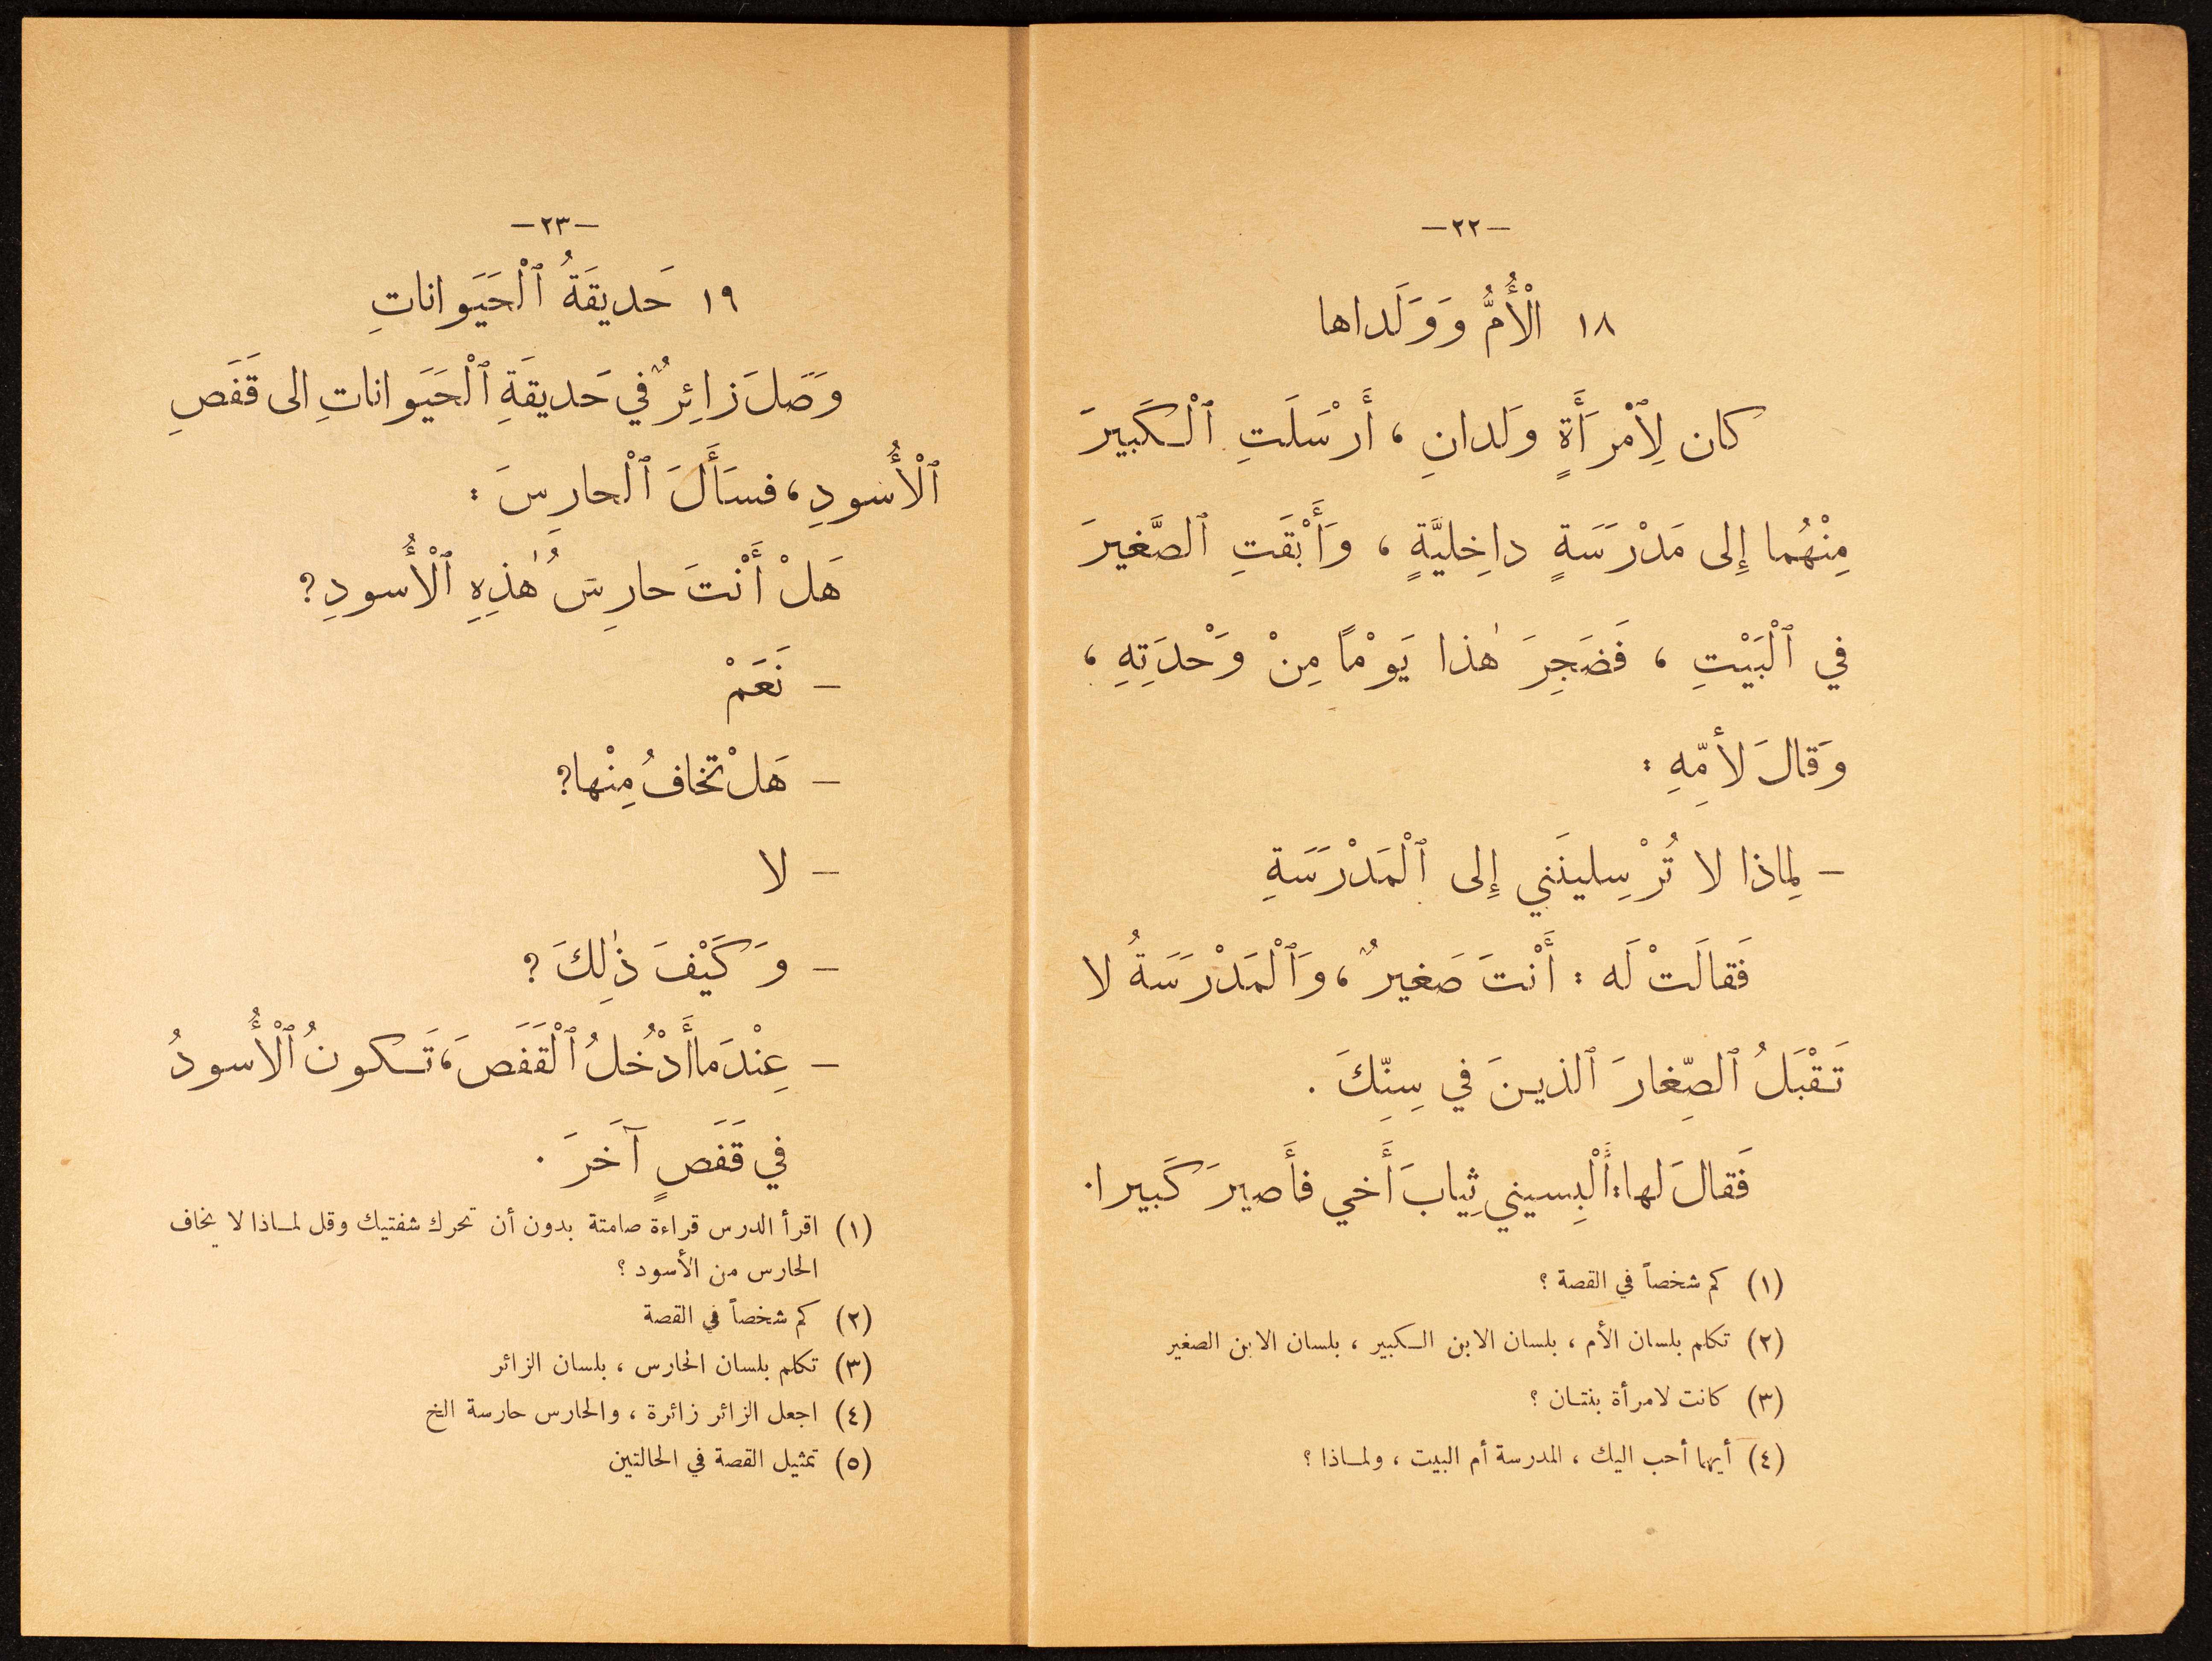 —٢٢—
١٨ الْأُمُّ وَوَلَداها
كان لِٱمْرَأَةٍ وَلدانِ ، أَرْسَلَتِ ٱلْكَبيرَ
مِنْهُما إِلى مَدْرَسَةٍ داخِليَّةٍ ، وَأَبْقَتِ ٱلصَّغيرَ
في ٱلْبَيْتِ ، فَضَجِرَ هٰذا يَوْمًا مِنْ وَحْدَتِهِ ،
وَقالَ لأمّهِ :
— لِماذا لا تُرْسِلينَني إِلى ٱلْمَدْرَسَةِ
فَقالَتْ لَه : أَنْتَ صَغيرٌ ، وَٱلْمَدْرَسَةُ لا
تَقْبَلُ ٱلصِّغارَ ٱلذينَ في سِنِّكَ .
فَقالَ لها : أَلْبِسيني ثِيابَ أَخي فأَصيرَ كَبيرا .
(١) كم شخصاً في القصة ؟
(٢) تكلم بلسان الأم ، بلسان الابن الكبير ، بلسان الابن الصغير
(٣) كانت لامرأة بنتان ؟
(٤) أيهما أحب اليك ، المدرسة أم البيت ، ولماذا ؟
—٢٣—
١٩ حَديقَةُ ٱلْحَيَوانات‍ِ
وَصَلَ زائِرٌ في حَديقَةِ ٱلْحَيَواناتِ الى قَفَصِ
ٱلْأُسودِ ، فسَأَلَ ٱلْحارِسَ :
هَلْ أَنْتَ حارِسُ هٰذِهِ ٱلْأُسودِ ؟
— نَعَمْ
— هَلْ تخافُ مِنْها ؟
— لا
— وَكَيْفَ ذٰلِكَ ؟
— عِنْدَما أَدْخُلُ ٱلْقَفَصَ ، تَكونُ ٱلْأُسودُ
في قَفَصٍ آخَرَ .
(١) اقرأ الدرس قراءة صامتة بدون أن تحرك شفتيك وقل لماذا لا يخاف
الحارس من الأسود ؟
(٢) كم شخصاً في القصة
(٣) تكلم بلسان الحارس ، بلسان الزائر
(٤) اجعل الزائر زائرة ، والحارس حارسة الخ
(٥) تمثيل القصة في الحالتين